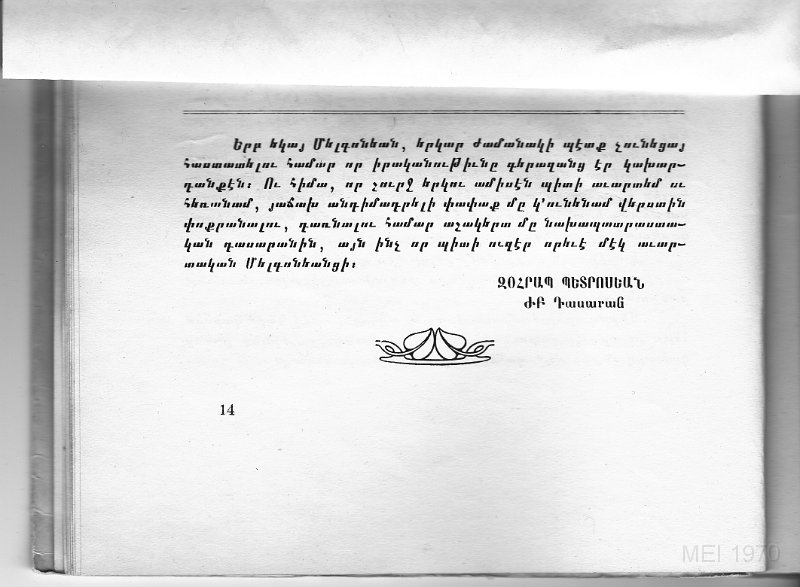 Երբ եկայ Մելգոնեան, երկար ժամանակի պէտք չունեցայ
հաստատելու համար որ իրականութիւնը գերազանց էր կախար-
դանքէն։ Ու հիմա, որ շուրջ երկու ամիսէն պիտի աւարտեմ ու
հեռանամ, յաճախ անդիմադրելի փափաք մը կ՚ունենամ վերստին
փոքրանալու, դառնալու համար աշակերտ մը նախապատրաստա-
կան դասարանին, այն ինչ որ պիտի ուզէր որեւէ մէկ աւար-
տական Մելգոնեանցի։
ԶՕՀՐԱՊ ՊԵՏՐՈՍԵԱՆ
ԺԲ Դասարան
14
MEI 1970